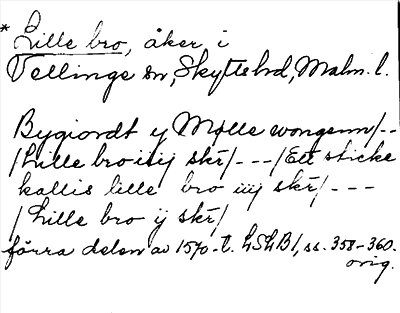 * Lille bro, åker i
Vellinge sn, Skytts hd, Malm. l.
Bygiordt y Mølle wongenn/--
/Lille bro iiij skr/---/Ett sticke
kallis lille bro iiij skr/---
/Lille bro ij skr/
förra delen av 1570-t. LSLB 1, ss. 358-360.
orig.